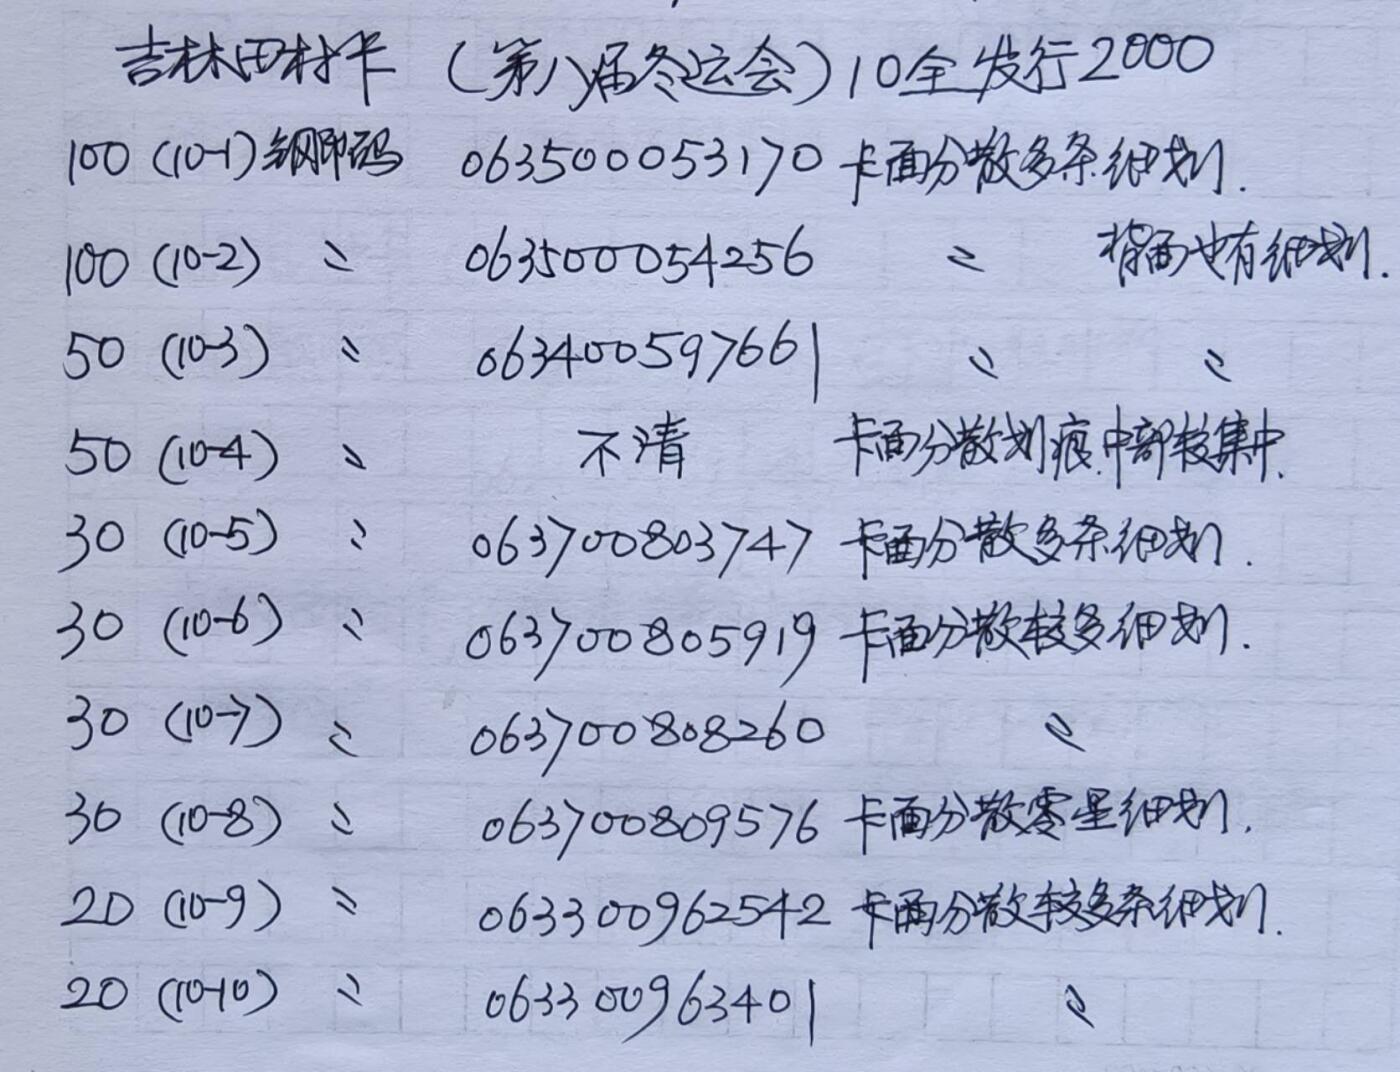 吉林田村卡（第八届冬运会）10全发行2000
100 (10-1) 钢印码 063500053170 卡面分散多条细划.
100 (10-2) 〃 063500054256 〃 背面也有细划.
50 (10-3) 〃 063400597661 〃 〃
50 (10-4) 〃 不清 卡面分散划痕.中部较集中.
30 (10-5) 〃 063700803747 卡面分散多条细划.
30 (10-6) 〃 063700805919 卡面分散较多细划.
30 (10-7) 〃 063700808260 〃
30 (10-8) 〃 063700809576 卡面分散零星细划.
20 (10-9) 〃 063300962542 卡面分散较多条细划.
20 (10-10) 〃 063300963401 〃